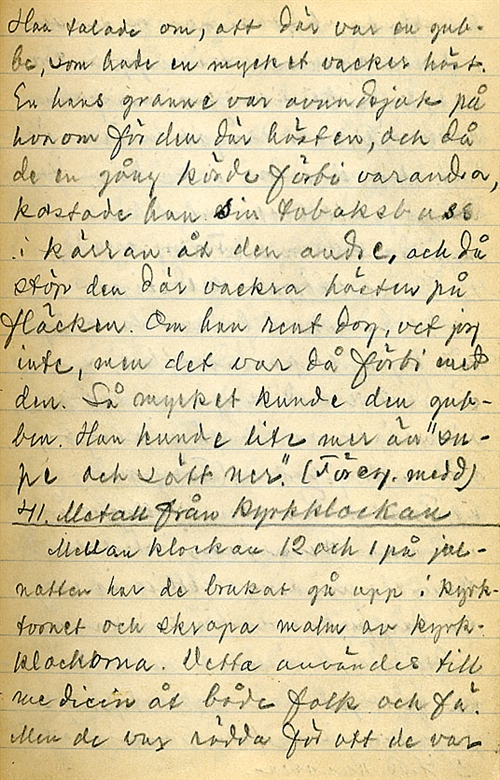 Han talade om, att där var en gub-
be, som hade en mycket vacker häst.
En hans granne var avundsjuk på
honom för den där hästen, och då
de en gång körde förbi varandra,
kastade han sin tobaksbuss
i kärran åt den andre, och då
stöp den där vackra hästen på
fläcken. Om han rent dog, vet jag
inte, men det var då förbi med
den. Så mycket kunde den gub-
ben. Han kunde lite mer än "su-
pe och sött ner". (Föreg. medd)
41. Metall från kyrkklockan
Mellan klockan 12 och 1 på jul-
natten har de brukat gå upp i kyrk-
tornet och skrapa malm av kyrk-
klockorna. Detta användes till
medicin åt både folk och fä.
Men de var rädda för att de var